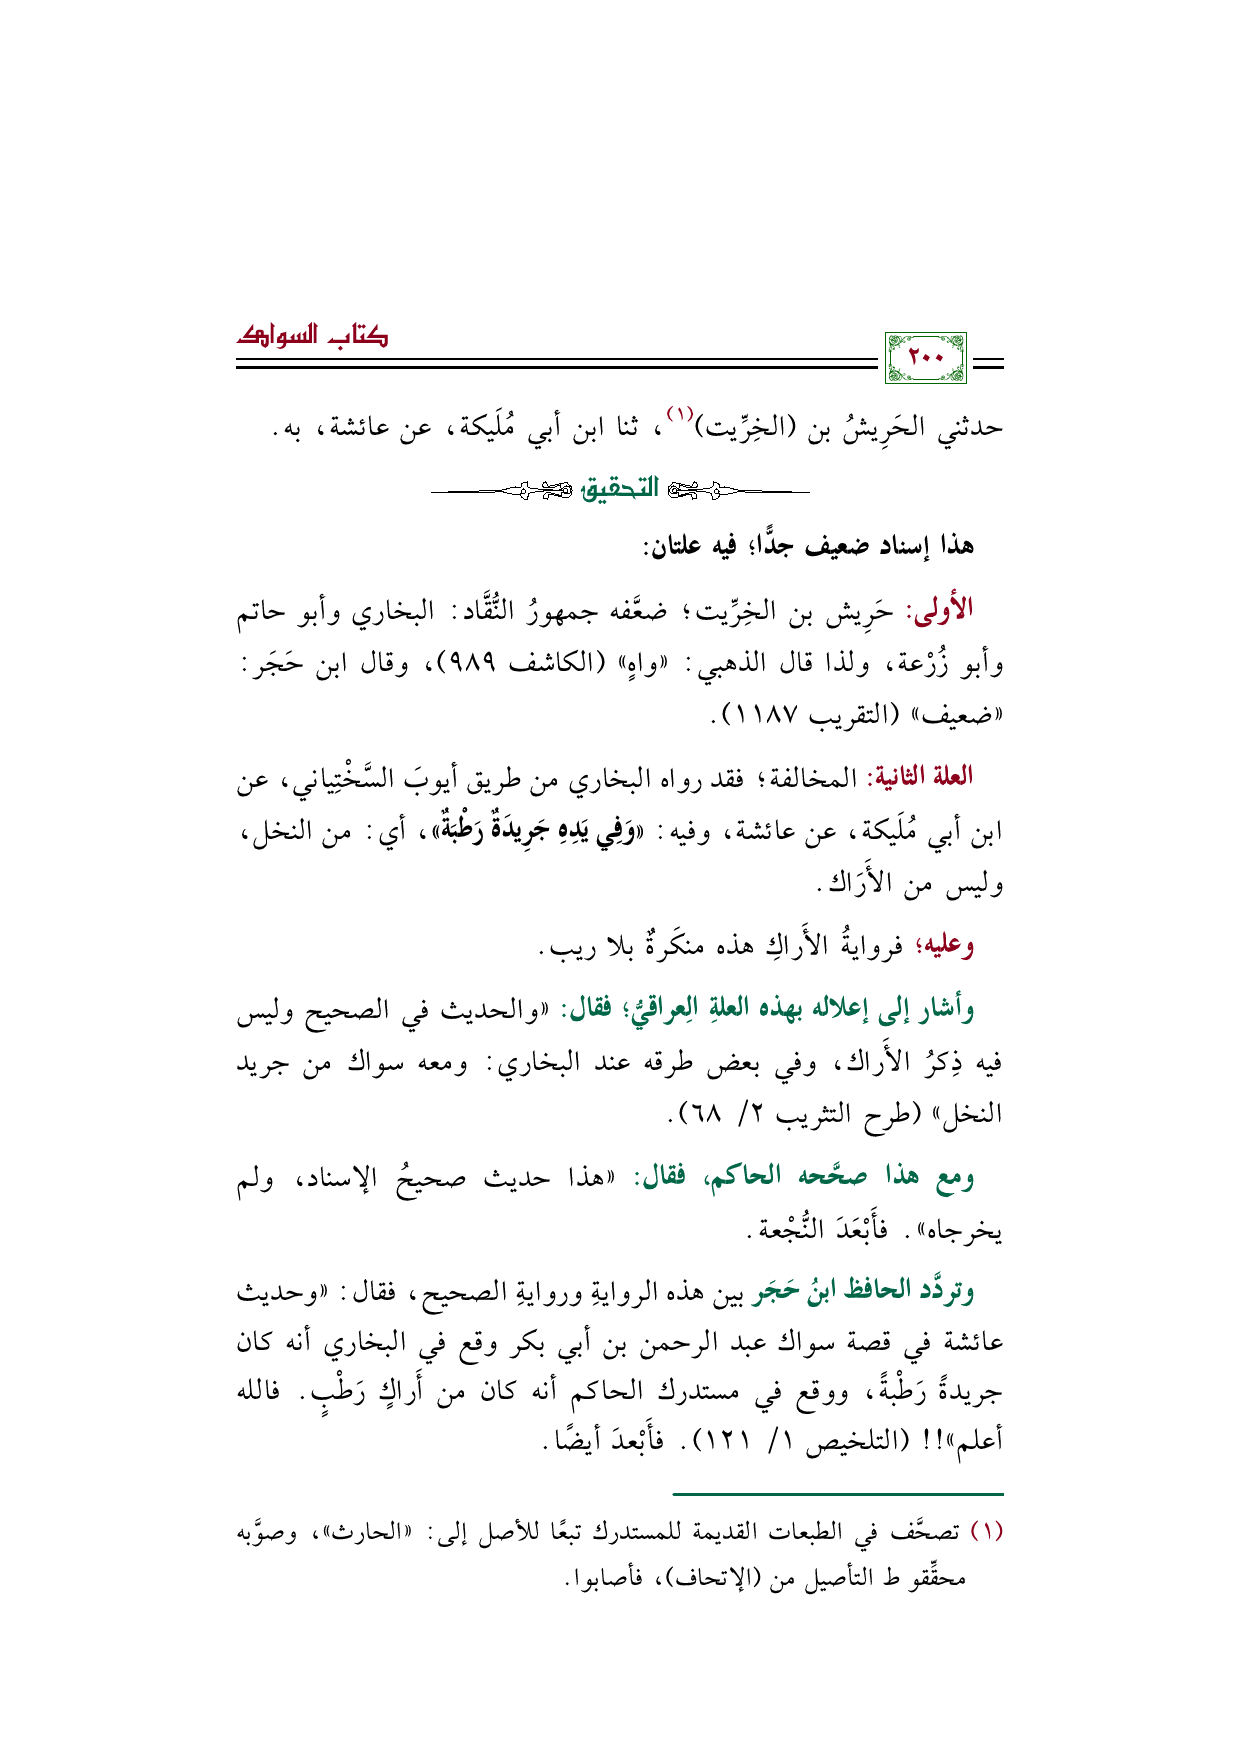 كتاب السواك
٢٠٠
حدثني الحَرِيشُ بن (الخِرِّيت)(١)، ثنا ابن أبي مُلَيكة، عن عائشة، به.
التحقيق
هذا إسناد ضعيف جدًّا؛ فيه علتان:
الأولى: حَرِيش بن الخِرِّيت؛ ضعَّفه جمهورُ النُّقَّاد: البخاري وأبو حاتم
وأبو زُرْعة، ولذا قال الذهبي: «واهٍ» (الكاشف ٩٨٩)، وقال ابن حَجَر:
«ضعيف» (التقريب ١١٨٧).
العلة الثانية: المخالفة؛ فقد رواه البخاري من طريق أيوبَ السَّخْتِياني، عن
ابن أبي مُلَيكة، عن عائشة، وفيه: «وَفِي يَدِهِ جَرِيدَةٌ رَطْبَةٌ»، أي: من النخل،
وليس من الأَرَاك.
وعليه؛ فروايةُ الأَراكِ هذه منكَرةٌ بلا ريب.
وأشار إلى إعلاله بهذه العلةِ العِراقيُّ؛ فقال: «والحديث في الصحيح وليس
فيه ذِكرُ الأَراك، وفي بعض طرقه عند البخاري: ومعه سواك من جريد
النخل» (طرح التثريب ٢/ ٦٨).
ومع هذا صحَّحه الحاكم، فقال: «هذا حديث صحيحُ الإسناد، ولم
يخرجاه». فأَبْعَدَ النُّجْعة.
وتردَّد الحافظ ابنُ حَجَر بين هذه الروايةِ وروايةِ الصحيح، فقال: «وحديث
عائشة في قصة سواك عبد الرحمن بن أبي بكر وقع في البخاري أنه كان
جريدةً رَطْبةً، ووقع في مستدرك الحاكم أنه كان من أَراكٍ رَطْبٍ. فالله
أعلم»!! (التلخيص ١/ ١٢١). فأَبْعدَ أيضًا.
(١) تصحَّف في الطبعات القديمة للمستدرك تبعًا للأصل إلى: «الحارث»، وصوَّبه
محقِّقو ط التأصيل من (الإتحاف)، فأصابوا.